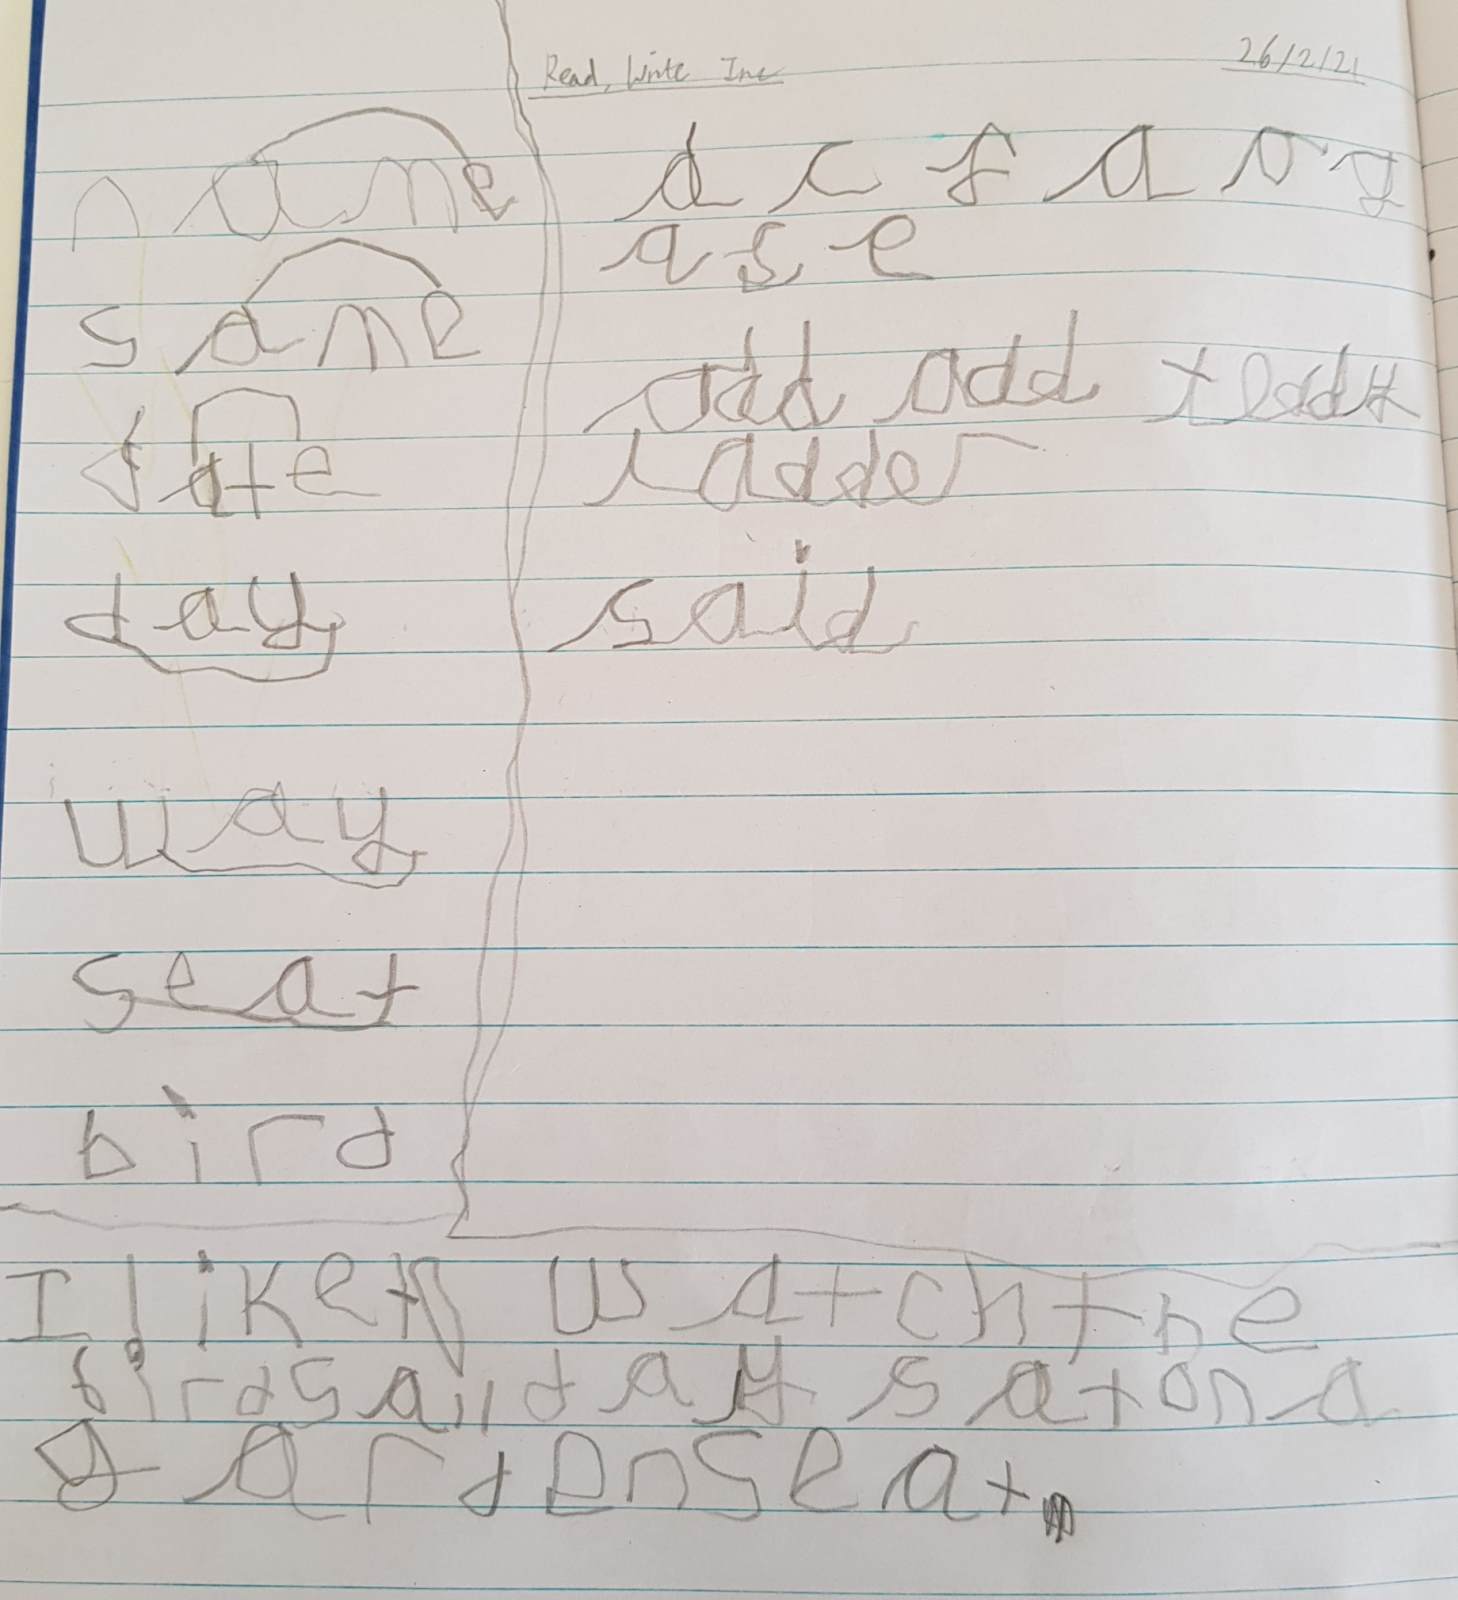 Read, Write Inc 26/2/21
name
same
fate
day
way
seat
bird
d c f a o g
q s e
odd add
ladder
said
I like to watch the
birdsalldaysatona
gardenseat.